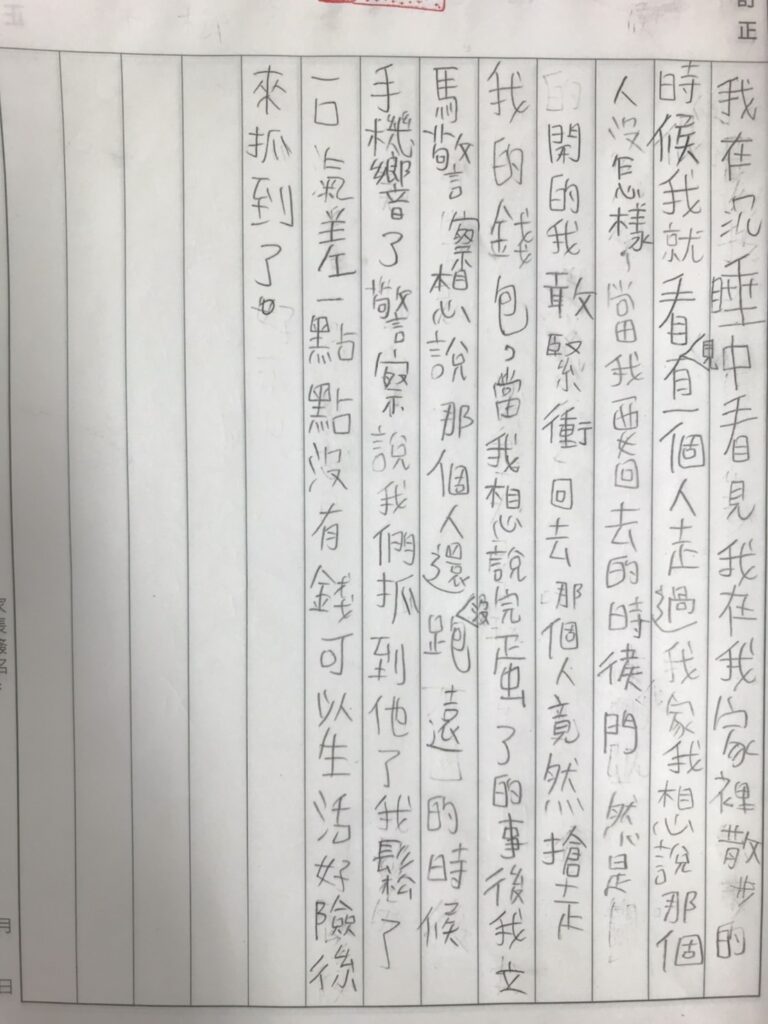 訂正
我在沉睡中看見我在我家裡散步的
時候我就看見有一個人走過我家我想說那個
人沒怎樣，當我要回去的時候門 然是
的開的我敢緊衝回去那個人竟然搶走
我的錢包，當我想說完蛋了的事後我立
馬警察想說那個人還沒跑遠的時候
手機響了警察說我們抓到他了我鬆了
一口氣差一點點沒有錢可以生活好險後
來抓到了。
家長簽名：
月 日